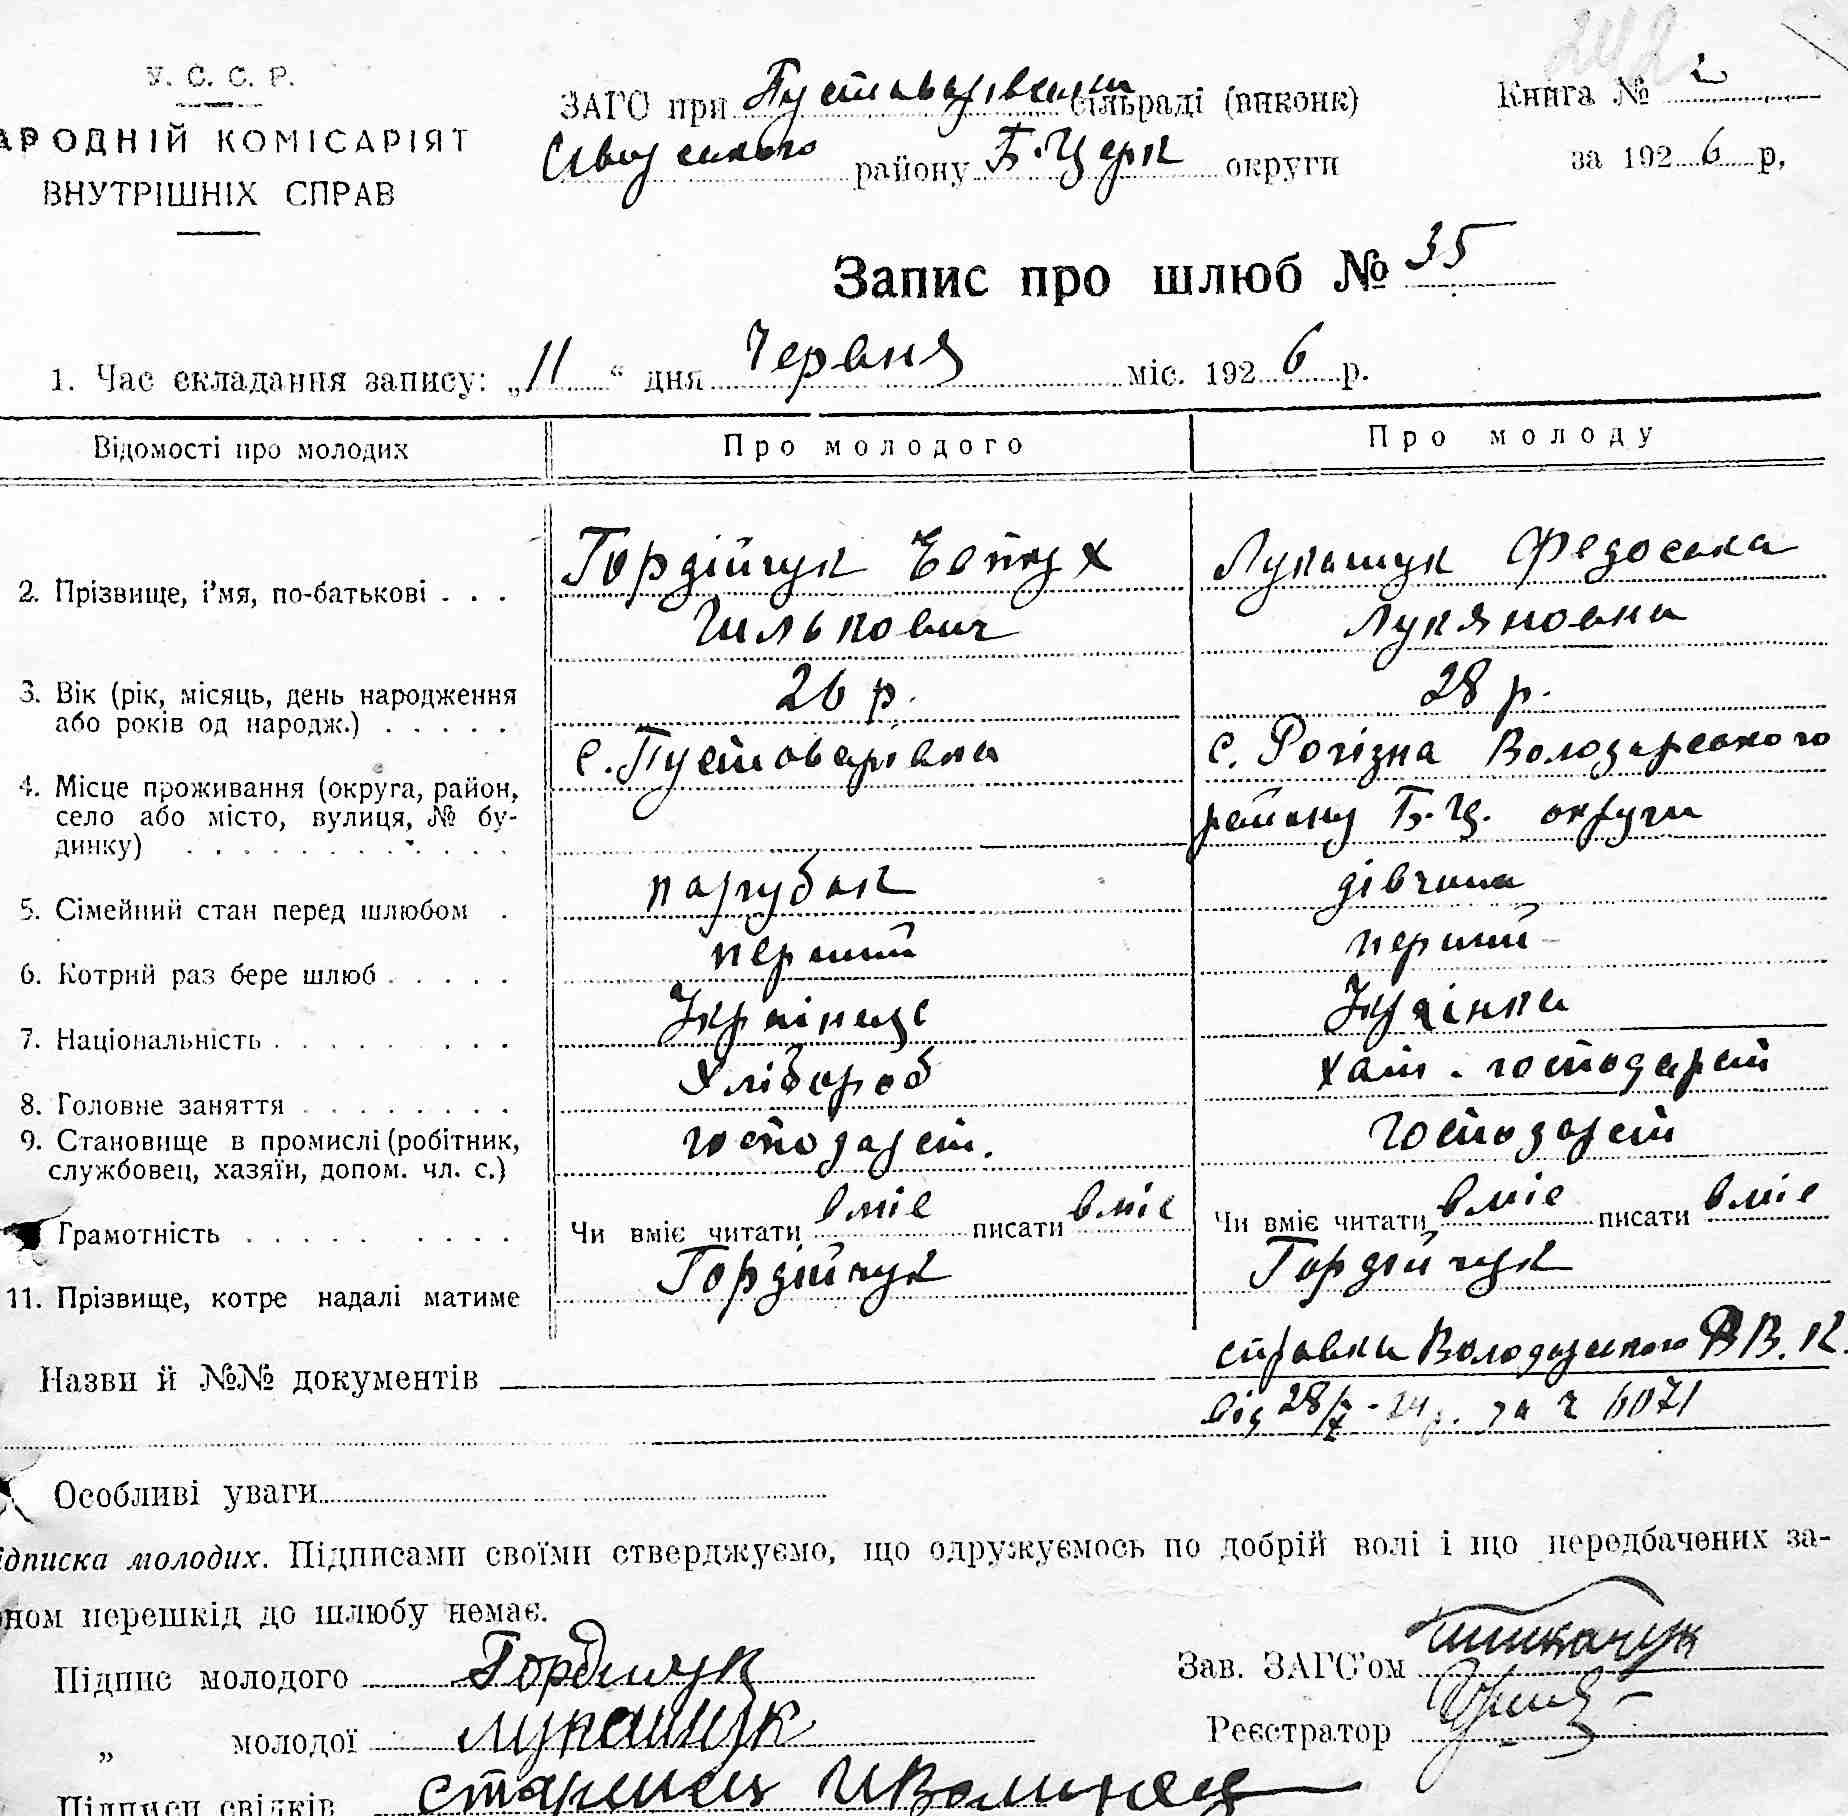 242
У. С. С. Р.
АРОДНІЙ КОМІСАРІЯТ
ВНУТРІШНІХ СПРАВ
ЗАГС при Пустоварівськ сільраді (виконк)
району Б-Церк округи
Книга № 2
за 1926 р,
Запис про шлюб № 35
1. Час складання запису: „11“ дня Червня міс. 1926 р.
Відомості про молодих
Про молодого
Про молоду
2. Прізвище, і'мя, по-батькові . . .
Гордійчук Евтух
Лукашук Федоська
Лукяновна
3. Вік (рік, місяць, день народження
або років од народж.) . . . . .
26 р.
28 р.
4. Місце проживання (округа, район,
село або місто, вулиця, № бу-
динку) . . . . . . . . . . . .
с. Пустоварівка
с. Рогізна Володарського
району Б.Ц. округи
5. Сімейний стан перед шлюбом .
парубок
дівчина
6. Котрий раз бере шлюб . . . . .
перший
перший
7. Національність . . . . . . . . .
Українец
Українка
8. Головне заняття . . . . . . . .
Хлібороб
хатн. господарст
9. Становище в промислі (робітник,
службовец, хазяїн, допом. чл. с.)
господарст.
господарст
Грамотність . . . . . . . . .
Чи вміє читати вміє писати вміє
Чи вміє читати вміє писати вміє
11. Прізвище, котре надалі матиме
Гордійчук
Гордійчук
Назви й №№ документів
справка Володарського РВ.К.
від 28/X-24р. за ч 6071
Особливі уваги
ідписка молодих. Підписами своїми стверджуємо, що одружуємось по добрій волі і що передбачених за-
оном перешкід до шлюбу немає.
Підпис молодого Гордичук
„ молодої Лукашук
Зав. ЗАГС'ом
Реєстратор
Підписи свідків